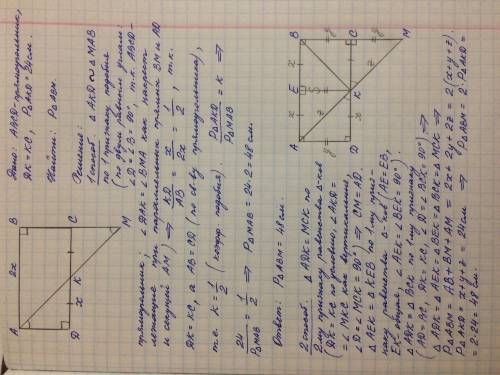 Дано: ABCD-прямоугольник,
DK=KC, P△AKD=24 см.
Найти: P△ABM.
Решение:
1 способ. △AKD ∾ △MAB
по 1 признаку подобия
(по двум равным углам:
∠D=∠B=90°, т.к. ABCD-
прямоугольник; ∠DAK=∠BMA как накрест
лежащие при параллельных прямых BM и AD
и секущей AM) ⇒ KD/AB = x/2x = 1/2, т.к.
DK=KC, а AB=CD (по св-ву прямоугольника),
т.е. k=1/2 (коэфф. подобия). P△AKD/P△MAB = k ⇒
24/P△MAB = 1/2 ⇒ P△MAB=24·2=48 см.
Ответ: P△ABM=48 см.
2 способ. △ADK=△MCK по
2му признаку равенства △-ков
(DK=KC по условию, ∠AKD=
=∠MKC как вертикальные,
∠D=∠MCK=90°) ⇒ CM=AD.
△AEK=△KEB по 1му приз-
наку равенства △-ков (AE=EB,
EK общая, ∠AEK=∠BEK=90°).
△ADK=△BCK по 1му признаку
(AD=BC, DK=KC, ∠D=∠BCK=90°) ⇒
△ADK=△AEK=△BEK=△BCK=△MCK ⇒
P△ABM=AB+BM+AM=2x+2y+2z=2(x+y+z).
P△AKD=x+y+z=24 см ⇒ P△ABM=2·P△AKD=
=2·24=48 см.
A
2x
B
D
x
K
C
M
A
x
E
x
B
y
z
y
D
x
K
C
z
y
M